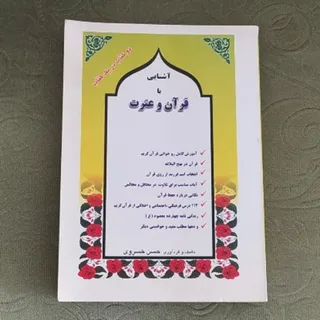 آشنایی
با
قرآن و عترت
آموزش کامل روخوانی قرآن کریم
قرآن در نهج البلاغه
انتخاب اسم فرزند از روی قرآن
آیات مناسب برای تلاوت در محافل و مجالس
نکاتی درباره حفظ قرآن
۱۱۴ درس فرهنگی، اجتماعی و اخلاقی از قرآن کریم
زندگی نامه چهارده معصوم (ع)
و دهها مطلب مفید و خواندنی دیگر
تألیف و گردآوری: حسن خسروی